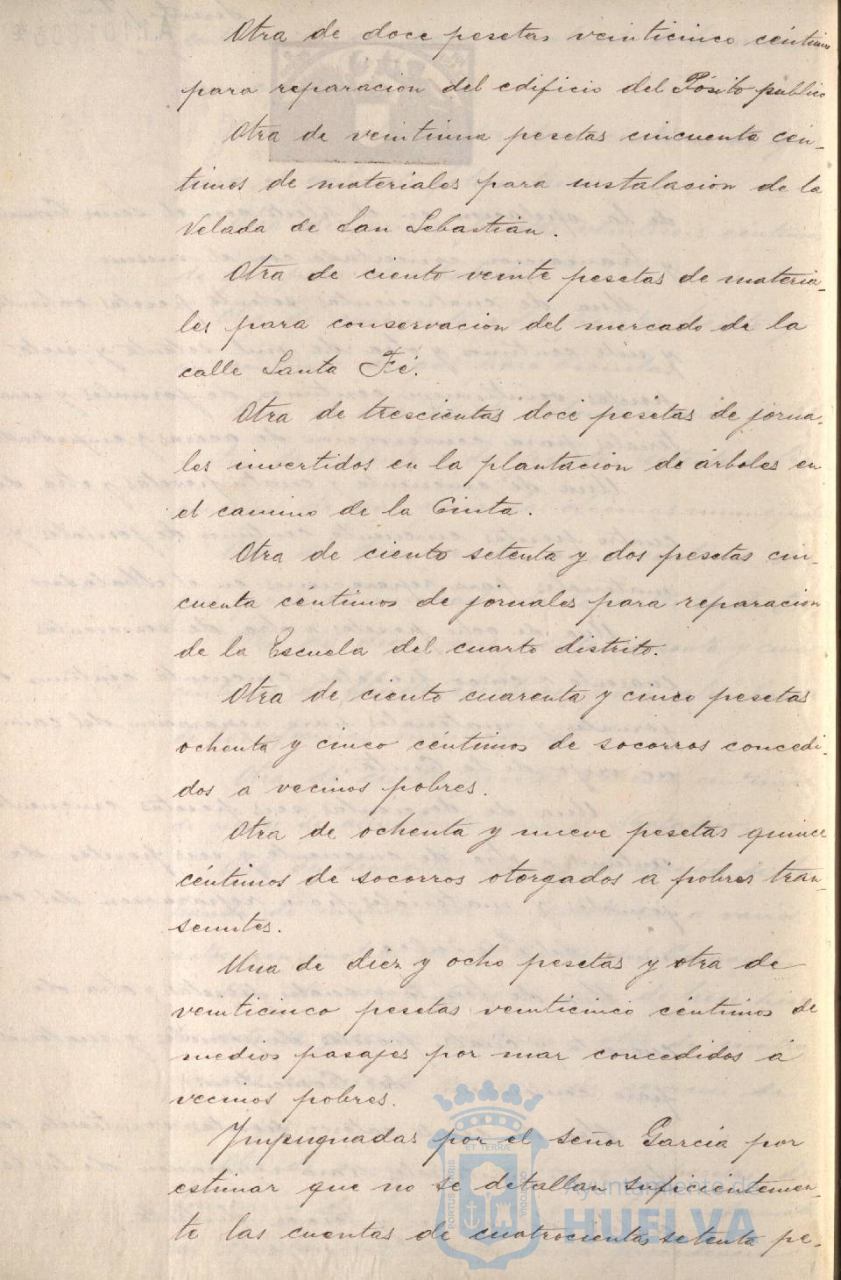 Otra de doce pesetas veinticinco céntimos
para reparacion del edificio del Pósito público
Otra de veintiuna pesetas cincuenta cén-
timos de materiales para instalacion de la
Velada de San Sebastián.
Otra de ciento veinte pesetas de materia-
les para conservacion del mercado de la
calle Santa Fé.
Otra de trescientas doce pesetas de jorna-
les invertidos en la plantación de árboles en
el camino de la Cinta.
Otra de ciento setenta y dos pesetas cin-
cuenta céntimos de jornales para reparacion
de la Escuela del cuarto distrito.
Otra de ciento cuarenta y cinco pesetas
ochenta y cinco céntimos de socorros concedi-
dos á vecinos pobres.
Otra de ochenta y nueve pesetas quince
céntimos de socorros otorgados á pobres tran-
seuntes.
Una de diez y ocho pesetas y otra de
veinticinco pesetas veinticinco céntimos de
medios pasajes por mar concedidos á
vecinos pobres.
Impugnadas por el señor García por
estimar que no se detallan suficientemen-
te las cuentas de cuatrocientas setenta pe-
PORTUS MARIS ET TERRAE CUSTODIA
Ayuntamiento de
HUELVA